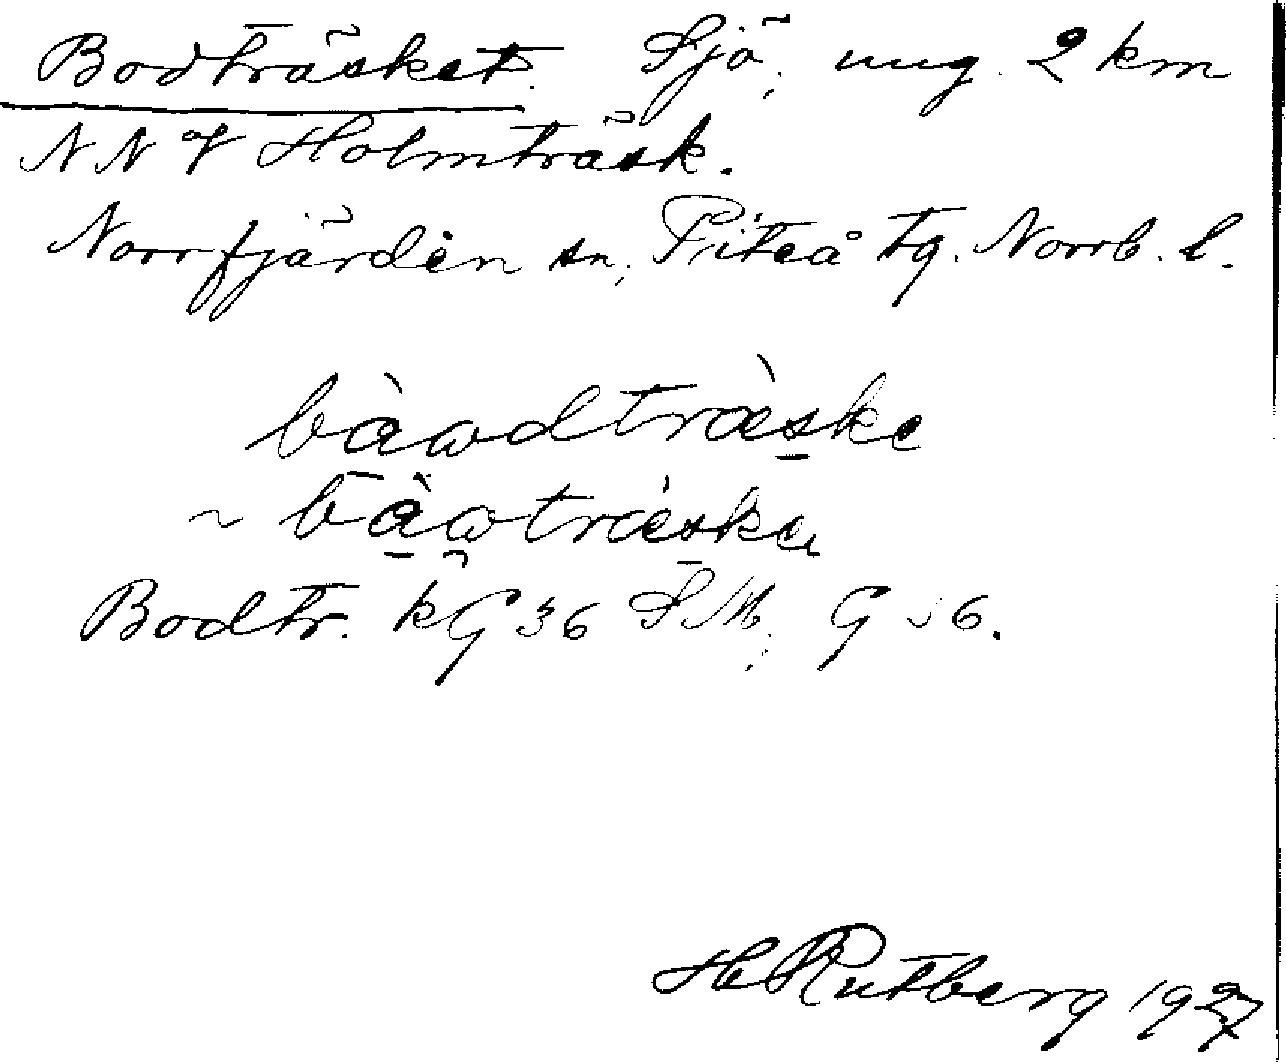 Bodträsket. Sjö, ung. 2 km
NNV Holmträsk.
Norrfjärden sn, Piteå tg. Norrb. l.
bàwdtræ̀ske
~ bàwtræ̀ske
Bodtr. kG 36 SM, G 36.
H Rutberg 1927